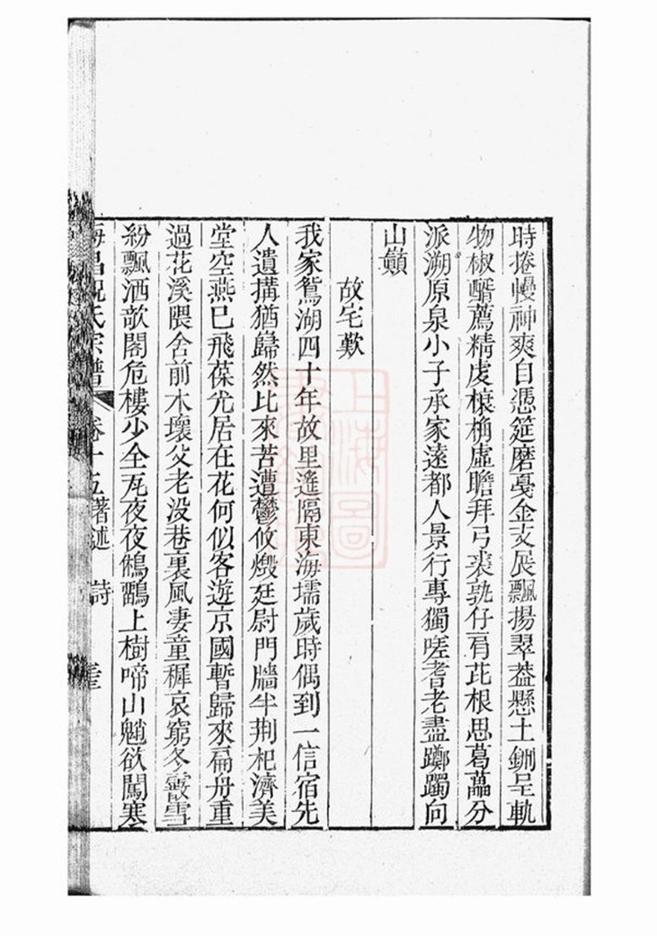 時捲幔神爽自憑筵磨戛金支展飄揚翠葢懸土鉶呈軌
物椒醑薦精虔榱桷虛瞻拜弓裘孰仔肩芘根思葛藟分
派溯原泉小子承家遠都人景行專獨嗟耆老盡躑躅向
山顚
故宅歎
我家鴛湖四十年故里遙隔東海壖歲時偶到一信宿先
人遺搆猶歸然比來苦遭鬱攸燬廷尉門牆半荆杞濟美
堂空燕巳飛葆光居在花何似客遊京國暫歸來扁舟重
過花溪隈舍前木壞父老没巷裏風妻童穉哀窮冬霰雪
紛飄洒歆閣危樓少全瓦夜夜鵂鶹上樹啼山魈欲闖寒
海昌祝氏宗譜 卷十五 著述 詩
上海圖